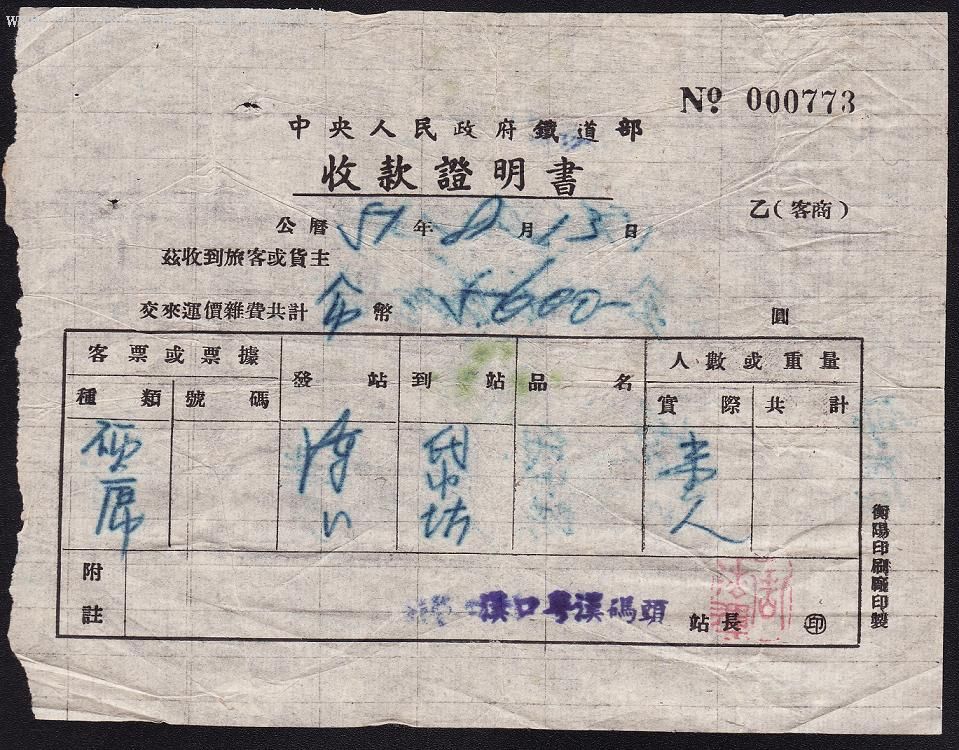 No 000773
中央人民政府鐵道部
收款證明書
乙（客商）
公曆 51 年 8 月 13 日
茲收到旅客或貨主
交來運價雜費共計 幣 5.600- 圓
客票或票據 發站 到站 品名 人數或重量
種類 號碼 實際 共計
硬席 漢口 岱家坊 壹人
附註
漢口粵漢碼頭 站長 印
衡陽印刷廠印製